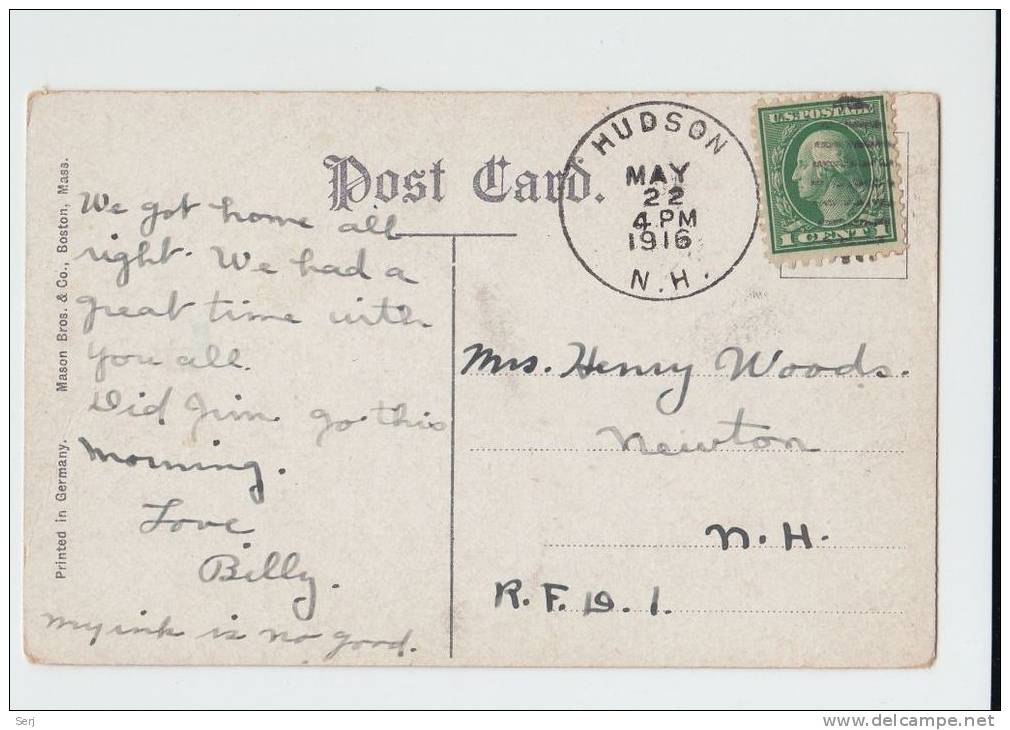 Post Card.
HUDSON
MAY
22
4 PM
1916
N.H.
U.S. POSTAGE
1 CENT 1
Printed in Germany. Mason Bros. & Co., Boston, Mass.
We got home all
right. We had a
great time with
you all.
Did Jim go this
morning.
Love
Billy.
my ink is no good.
Mrs. Henry Woods.
Newton
N.H.
R.F.D.1.
Serj
www.delcampe.net